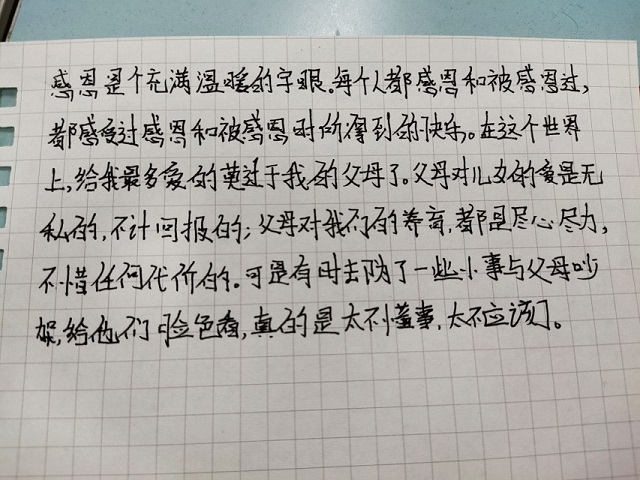 感恩是个充满温暖的字眼。每个人都感恩和被感恩过，
都感受过感恩和被感恩时所得到的快乐。在这个世界
上，给我最多爱的莫过于我的父母了。父母对儿女的爱是无
私的，不计回报的；父母对我们的养育，都是尽心尽力，
不惜任何代价的。可是有时去为了一些小事与父母吵
架，给他们脸色看，真的是太不懂事，太不应该了。